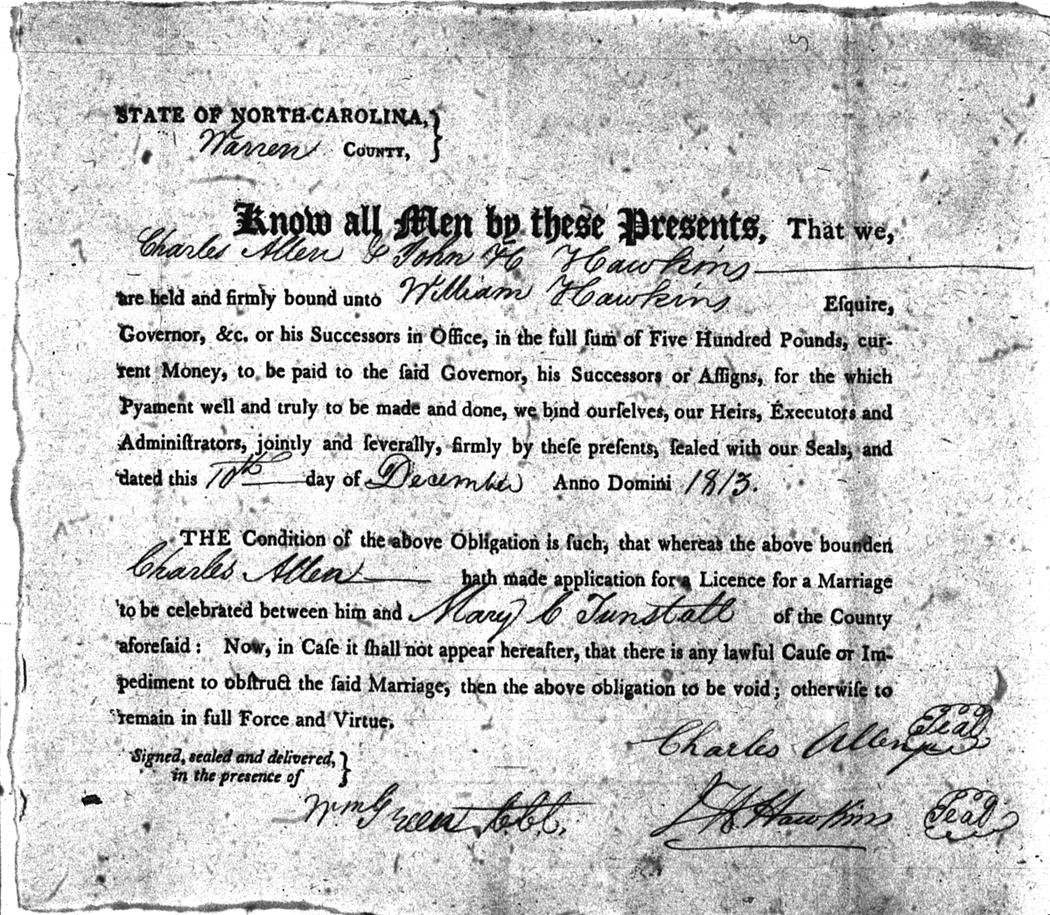 STATE OF NORTH-CAROLINA,
Warren COUNTY,
Know all Men by these Presents, That we,
Charles Allen & John H Hawkins
are held and firmly bound unto William Hawkins Eſquire,
Governor, &c. or his Succeſſors in Office, in the full ſum of Five Hundred Pounds, cur-
rent Money, to be paid to the ſaid Governor, his Succeſſors or Aſſigns, for the which
Pyament well and truly to be made and done, we bind ourſelves, our Heirs, Executors and
Adminiſtrators, jointly and ſeverally, firmly by theſe preſents, ſealed with our Seals, and
dated this 10th day of December Anno Domini 1813.
THE Condition of the above Obligation is ſuch, that whereas the above bounden
Charles Allen hath made application for a Licence for a Marriage
to be celebrated between him and Mary C Tunstall of the County
aforeſaid: Now, in Caſe it ſhall not appear hereafter, that there is any lawful Cauſe or Im-
pediment to obſtruct the ſaid Marriage, then the above obligation to be void; otherwiſe to
remain in full Force and Virtue.
Charles Allen Seal
Signed, sealed and delivered,
in the presence of
Wm Green J H Hawkins Seal